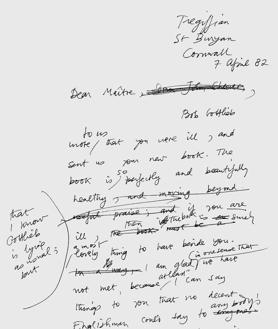 Tregiffian
St Buryan
Cornwall
7 April 82
Dear Maître, John Cheever,
Bob Gottlieb
to us
wrote / that you were ill, and
sent us your new book. The
so
book is perfectly and beautifully
healthy, and moving beyond
useful praise; and if you are
then
ill, the book must be a surely
almost
lovely thing to have beside you.
is nonsense that
I am glad we have
at least
not met, because I can say
things to you that no decent
anybody
Englishman could say to
that
I know
Gottlieb
is lying
as usual;
but